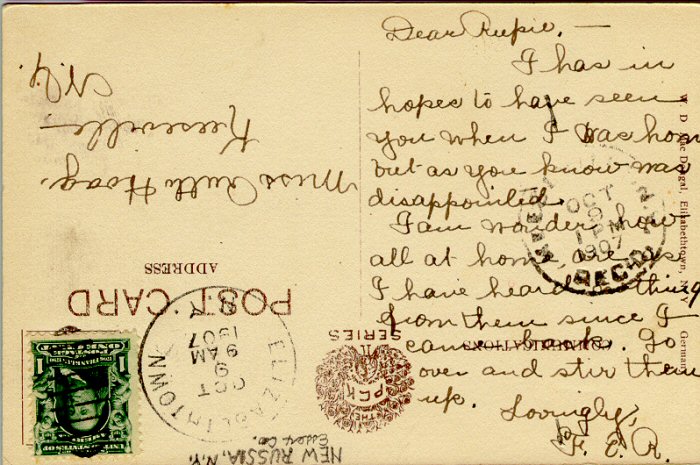 Dear Rupie. —
I has in
hopes to have seen
you when I was hom
but as you know was
disappointed.
I am wonder how
all at home are as
I have heard nothing
from them since I
came back. Go
over and stir them
up. Lovingly,
F. E. R.
POST CARD
ADDRESS
CORRESPONDENCE
Miss Ruth Hoag.
Keeseville
N.Y.
W. D. MacDougal, Elizabethtown, N. Y. Germany
OCT
9
1 PM
1907
REC'D.
ELIZABETHTOWN
OCT
9
9 AM
1907
N.Y.
THE
P.C.K
SERIES
NEW RUSSIA, N.Y.
Essex Co.
ONE CENT
1 1